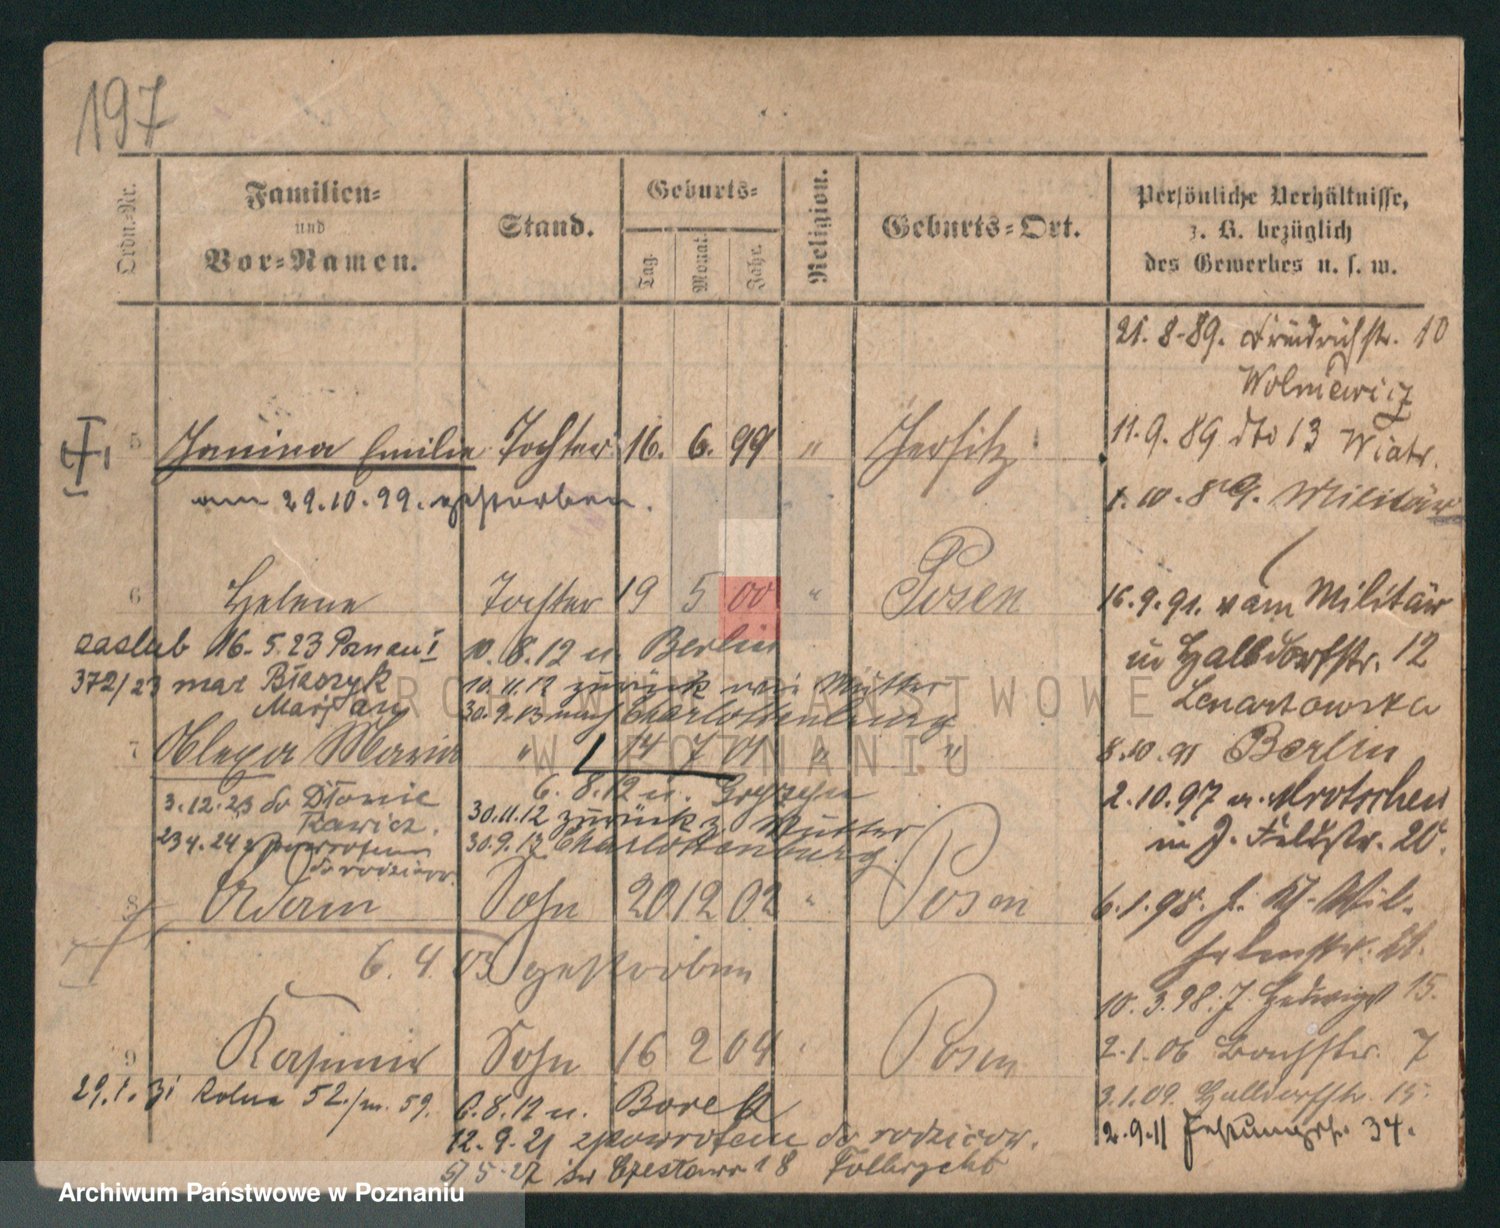 197
Ordn.-Nr.
Familien-
und
Vor-Namen.
Stand.
Geburts-
Tag.
Monat.
Jahr.
Religion.
Geburts-Ort.
Persönliche Verhältnisse,
z. B. bezüglich
des Gewerbes u. s. w.
21. 8. 89. Friedrichstr. 10
Wolniewicz
11. 9. 89 dto 13 Wiatr.
1. 10. 89. Militär
5 Janina Emilie Tochter 16. 6. 99 " Jersitz
am 29.10.99. gestorben.
6 Helene Tochter 19 5 00 " Posen
16.9.91. vom Militär
in Halbdorfstr. 12
Lenartowska
zaslub 16. 5. 23 Poznań I
372/23 mąż Błaszyk
Marjan
10. 8. 12 n. Berlin
10.11.12 zurück Mutter
30.9.13 nach Charlottenburg
7 Olega Maria " 14 7 01 " "
8.10.91 Berlin
3.12.23 do Dłonie
Rawicz.
23 4. 24 zpowrotem
do rodziców.
6. 8. 12 n.
30.11.12 zurück z. Mutter
30.9.13 Charlottenburg
2.10.97 a. Mrotschen
in J. Feldstr. 20.
8 Adam Sohn 20 12 02 " Posen
6. 4. 03 gestorben
6.1.98. J.
10.3.98. J. Hedwigst 15.
9 Kasimir Sohn 16 2 04 Posen
2.1.06 Bachstr. 7
3.1.09. Halbdorfstr. 15.
2.9.11 Festungsstr. 34.
29.1.31 Rolna 52./m. 59.
6.8.12 n. Borek
12. 9. 21 zpowrotem do rodziców.
5/5.27
ARCHIWUM PAŃSTWOWE
W POZNANIU
Archiwum Państwowe w Poznaniu